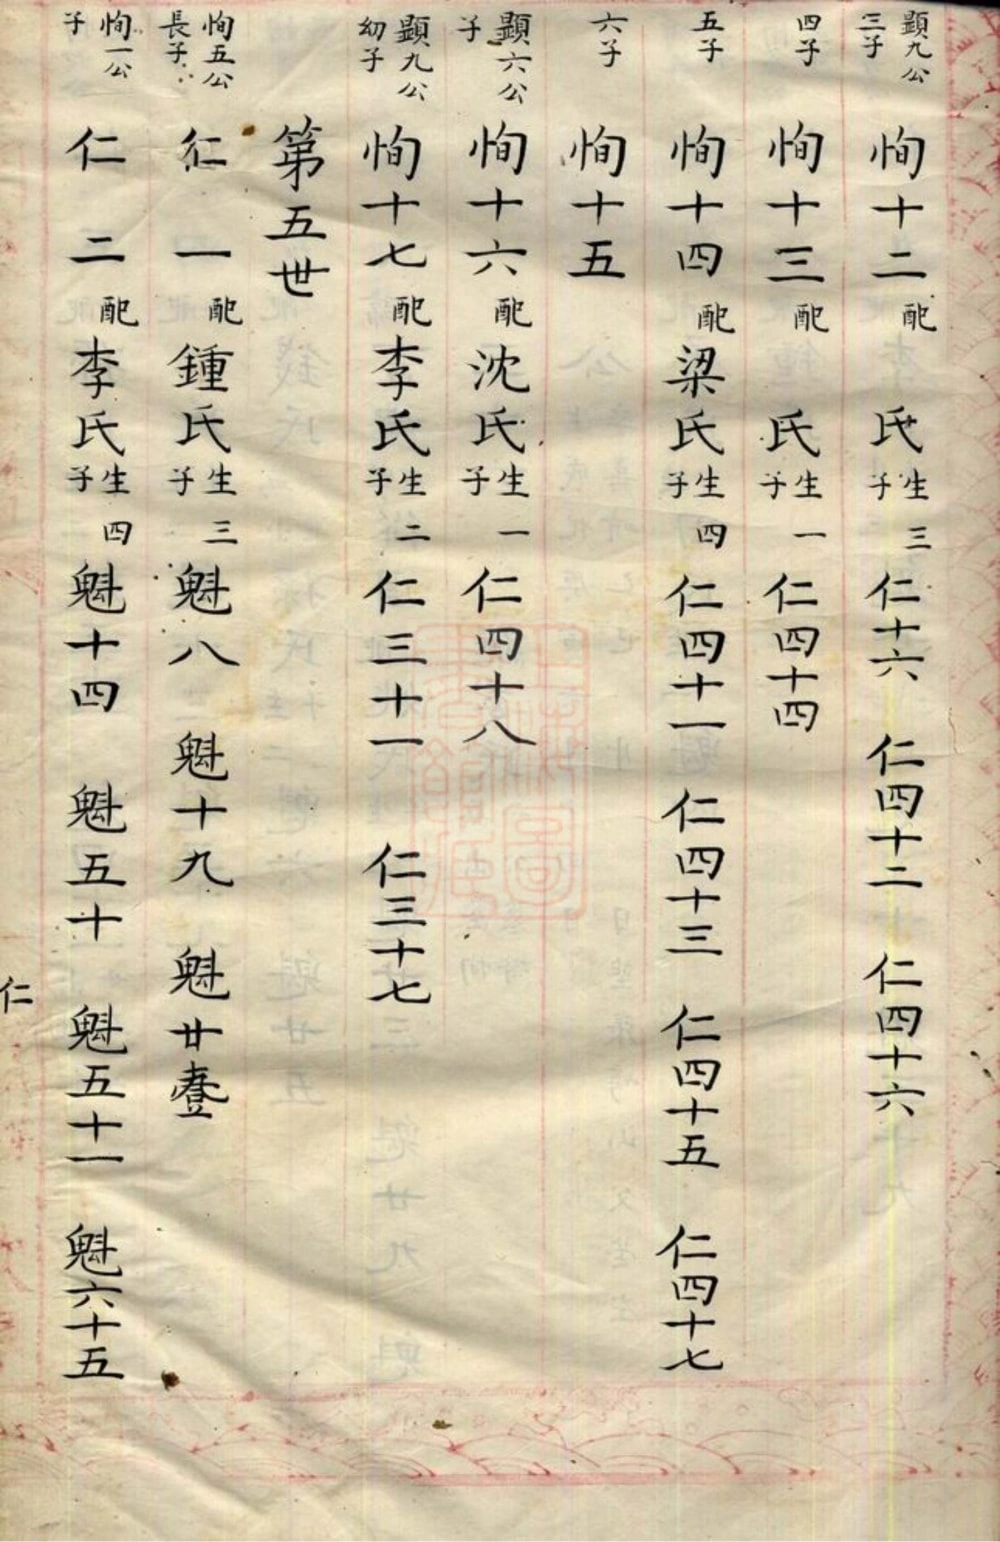 顯九公三子 恂十二 配 氏 生子三 仁十六 仁四十二 仁四十六
四子 恂十三 配 氏 生子一 仁四十四
五子 恂十四 配梁氏 生子四 仁四十一 仁四十三 仁四十五 仁四十七
六子 恂十五
顯六公子 恂十六 配沈氏 生子一 仁四十八
顯九公幼子 恂十七 配李氏 生子二 仁三十一 仁三十七
第五世
恂五公長子 仁一 配鍾氏 生子三 魁八 魁十九 魁廿壹
恂一公子 仁二 配李氏 生子四 魁十四 魁五十 魁五十一 魁六十五
仁